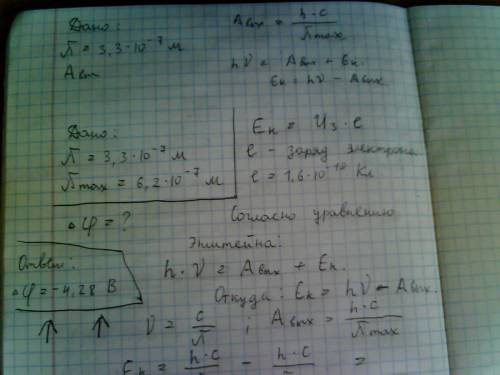 Дано:
λ = 3,3·10⁻⁷ м
Aвых
Aвых = h·c / λmax
hν = Aвых + Eк.
Eк = hν − Aвых
Дано:
λ = 3,3·10⁻⁷ м
λmax = 6,2·10⁻⁷ м
Δφ = ?
Ответ:
Δφ = −4,28 В
Eк = Uз · e
e – заряд электрона
e = 1,6·10⁻¹⁹ Кл
Согласно уравнению
Энштейна:
h·ν = Aвых + Eк.
Откуда: Eк = hν − Aвых.
ν = c / λ ; Aвых = h·c / λmax
Eк = h·c − h·c =